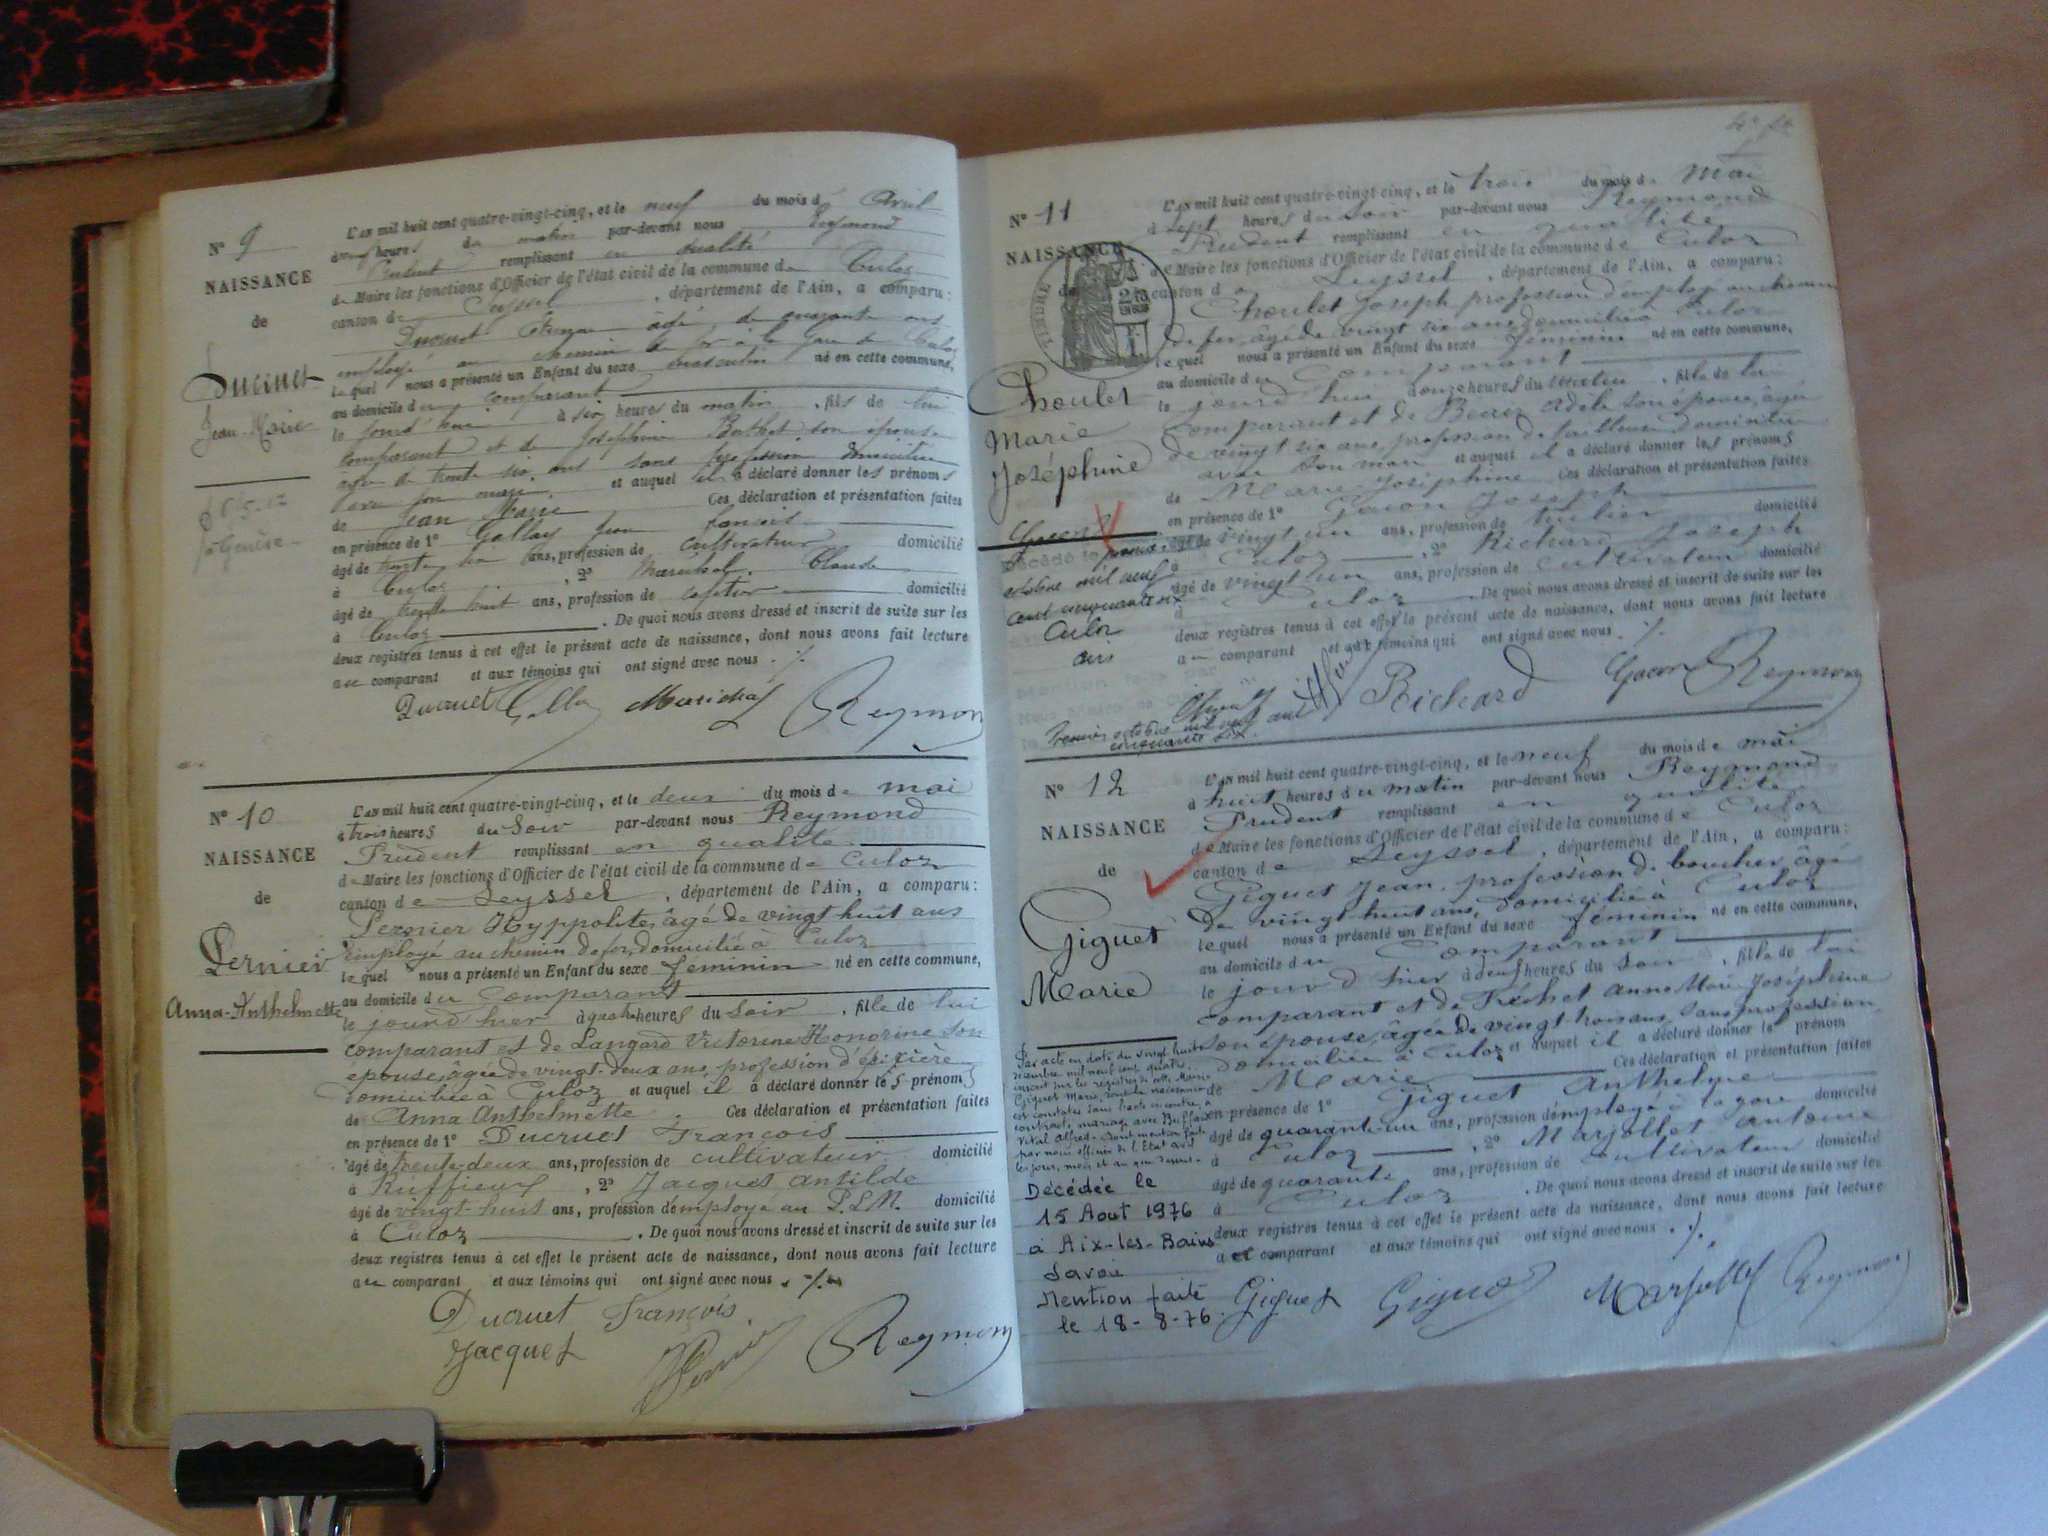 N° 9
NAISSANCE
de
Ducruet
Jean-Marie
L'an mil huit cent quatre-vingt-cinq, et le neuf du mois d' Avril
à neuf heures du matin par-devant nous Reymond
Prudent remplissant en qualité
de Maire les fonctions d'Officier de l'état civil de la commune de Culoz
canton de Seyssel, département de l'Ain, a comparu:
Ducruet Étienne âgé de quarante ans
employé au chemin de fer à la Gare de Culoz
lequel nous a présenté un Enfant du sexe masculin né en cette commune,
au domicile du comparant
le jourd'hui à six heures du matin, fils de lui
comparant et de Joséphine Berthet son épouse
âgée de trente six ans sans profession domiciliée
avec son mari, et auquel il a déclaré donner les prénoms
de Jean Marie Ces déclaration et présentation faites
en présence de 1° Gallay
âgé de trente ans, profession de cultivateur domicilié
à Culoz, 2° Maréchal Claude
âgé de trente huit ans, profession de cafetier domicilié
à Culoz. De quoi nous avons dressé et inscrit de suite sur les
deux registres tenus à cet effet le présent acte de naissance, dont nous avons fait lecture
au comparant et aux témoins qui ont signé avec nous ./.
Ducruet Gallay Maréchal Reymond
N° 10
NAISSANCE
de
Pernier
Anna-Anthelmette
L'an mil huit cent quatre-vingt-cinq, et le deux du mois de mai
à trois heures du Soir par-devant nous Reymond
Prudent remplissant en qualité
de Maire les fonctions d'Officier de l'état civil de la commune de Culoz
canton de Seyssel, département de l'Ain, a comparu:
Pernier Hyppolite, âgé de vingt huit ans
employé au chemin de fer, domicilié à Culoz
lequel nous a présenté un Enfant du sexe féminin né en cette commune,
au domicile du comparant
le jour d'hier à quatre heures du Soir, fille de lui
comparant et de Langard Victorine Honorine son
épouse, âgée de vingt-deux ans, profession d'épicière
domiciliée à Culoz et auquel il a déclaré donner les prénoms
de Anna Anthelmette. Ces déclaration et présentation faites
en présence de 1° Ducruet François
âgé de trente-deux ans, profession de cultivateur domicilié
à Ruffieux, 2° Jacquet Antilde
âgé de vingt-huit ans, profession d'employé au P.L.M. domicilié
à Culoz. De quoi nous avons dressé et inscrit de suite sur les
deux registres tenus à cet effet le présent acte de naissance, dont nous avons fait lecture
au comparant et aux témoins qui ont signé avec nous ./.
Ducruet François
Jacquet Pernier Reymond
N° 11
NAISSANCE
de
TIMBRE
Choulet
Marie
Joséphine
L'an mil huit cent quatre-vingt-cinq, et le trois du mois de mai
à sept heures du soir par-devant nous Reymond
Prudent remplissant en qualité
de Maire les fonctions d'Officier de l'état civil de la commune de Culoz
canton de Seyssel, département de l'Ain, a comparu:
Choulet Joseph, profession d'employé au chemin
de fer, âgé de vingt six ans domicilié à Culoz
lequel nous a présenté un Enfant du sexe féminin né en cette commune,
au domicile du comparant
le jourd'hui à onze heures du matin, fille de lui
comparant et de Adèle son épouse, âgée
de vingt six ans, profession de tailleuse domiciliée
avec son mari et auquel il a déclaré donner les prénoms
de Marie Joséphine Ces déclaration et présentation faites
en présence de 1° Gacon Joseph
âgé de vingt un ans, profession de tuilier domicilié
à Culoz, 2° Richard Joseph
âgé de vingt un ans, profession de cultivateur domicilié
à Culoz. De quoi nous avons dressé et inscrit de suite sur les
deux registres tenus à cet effet le présent acte de naissance, dont nous avons fait lecture
au comparant et aux témoins qui ont signé avec nous ./.
Décédé le
octobre mil neuf
cent cinquante six
Culoz
Ain
Richard Gacon Reymond
Premier octobre mil neuf cent
cinquante six
N° 12
NAISSANCE
de
Giguet
Marie
L'an mil huit cent quatre-vingt-cinq, et le neuf du mois de mai
à huit heures du matin par-devant nous Reymond
Prudent remplissant en qualité
de Maire les fonctions d'Officier de l'état civil de la commune de Culoz
canton de Seyssel, département de l'Ain, a comparu:
Giguet Jean, profession de boucher, âgé
de vingt huit ans, domicilié à Culoz
lequel nous a présenté un Enfant du sexe féminin né en cette commune,
au domicile du comparant
le jour d'hier à deux heures du Soir, fille de lui
comparant et de Fréchet Anne Marie Joséphine
son épouse, âgée de vingt trois ans, sans profession
domiciliée à Culoz et auquel il a déclaré donner le prénom
de Marie Ces déclaration et présentation faites
en présence de 1° Giguet Anthelme
âgé de quarante-un ans, profession d'employé à la gare domicilié
à Culoz, 2° Marjollet Antoine
âgé de quarante ans, profession de cultivateur domicilié
à Culoz. De quoi nous avons dressé et inscrit de suite sur les
deux registres tenus à cet effet le présent acte de naissance, dont nous avons fait lecture
au comparant et aux témoins qui ont signé avec nous ./.
Par acte en date du vingt huit
mil neuf cent quatre,
inscrit sur les registres de cette Mairie
Giguet Marie, dont la naissance
est constatée dans l'acte ci-contre, a
contracté mariage avec Buffaz
Vital Alfred. Dont mention faite
par nous officier de l'État civil
les jour, mois et an que dessus.
Décédée le
15 Aout 1976
à Aix-les-Bains
Savoie
Mention faite
le 18-8-76
Giguet Giguet Marjollet Reymond